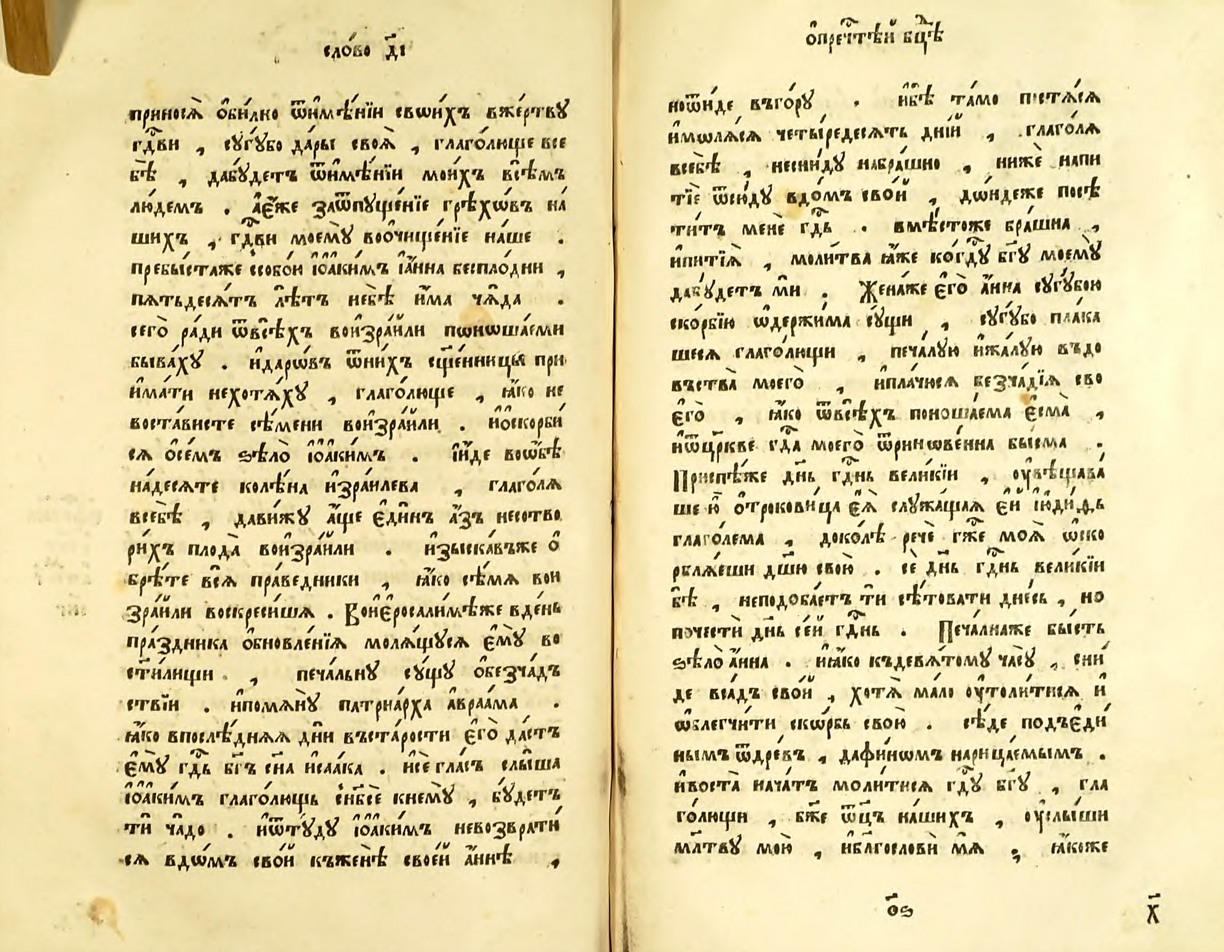 сло́во д҃і
принося̀ ѻ҆би́лно ѿи҆мѣ́нїи свѡи́хъ вже́ртву
гд҇ви , сꙋгꙋ́бо да́ры своѧ̀ , глаго́люще все
бѣ̀ , дабꙋ́детъ ѿи҆мѣ́нїи мои́хъ всѣ́мъ
лю́демъ . а҆є҆́же заѿпꙋще́нїе грѣхѡ́въ на́
шихъ , гд҇ви моемꙋ̀ воѻ҆чище́нїе на́ше .
пребы́стаже ѕсобо́и і҆ѡаки́мъ і҆а́нна беспло́дни ,
пѧтьдесѧ́тъ лѣ́тъ небѣ̀ и҆́ма ча́да .
сего̀ ра́ди ѿвсѣ́хъ вои҆зра́или поношаеми
быва́хꙋ . и҆да́рѡвъ ѿни́хъ сщ҃е́нницы при
и҆ма́ти нехотѧ́хꙋ , глаго́люще , ꙗ҆́ко не
воста́висте сѣ́мени вои҆зра́или . и҆ѻ҆скорби́
сѧ ѻ҆се́мъ ѕѣлѡ̀ і҆ѡаки́мъ . и҆и҆́де воѻ҆бѣ
на́десѧте колѣ́на и҆зра́илева , глаго́лѧ
всебѣ̀ , дави́жꙋ а҆́ще є҆ди́нъ а҆́зъ несотво
ри́хъ плода̀ вои҆зра́или . и҆зыска́въже ѻ҆
брѣ́те всѧ̀ пра́ведники , ꙗ҆́ко сѣ́мѧ вои҆
зра́или воскреси́шѧ . Вои҆єросали́мѣже вде́нь
пра́здника ѻ҆бновле́нїѧ молѧ́щꙋсѧ є҆мꙋ̀ во
ст҃и́лищи , печа́льнꙋ сꙋ́щꙋ ѻ҆безча́дъ
ствїи . и҆помѧнꙋ̀ патрїа́рха а҆враа́ма .
ꙗ҆́ко впослѣ́днѧѧ дни̑ въста́рости є҆го̀ да́стъ
є҆мꙋ̀ гд҇ь бг҃ъ сн҃а и҆саа́ка . и҆сѐ гла́съ слы́ша
і҆ѡаки́мъ глаго́лющь сн҃бсѐ кнемꙋ̀ , бꙋ́детъ
тѝ ча́до . и҆ѿтꙋ́дꙋ і҆ѡаки́мъ невозврати́
сѧ вдо́мъ сво́и къженѣ̀ свое́и а҆́ннѣ ,
ѻ҆пречⷭ҇тѣи бц҃ѣ
ноѿи́де въго́рꙋ . и҆бѣ̀ та́мо постѧ́сѧ
и҆молѧ́сѧ четы́редесѧть дні́и , глаго́лѧ
всебѣ̀ , несни́дꙋ набра́шно , ни́же напи
тїѐ ѿсю́дꙋ вдо́мъ сво́и , до́ндеже посѣ
ти́тъ менѐ гд҇ь . вмѣ́стоже бра́шна ,
и҆питїѧ̀ , моли́тва ꙗ҆́же ко́гдꙋ бг҃ꙋ моемꙋ̀
дабꙋ́детъ мѝ . Жена́же є҆го̀ а҆́нна сꙋгꙋ́бою
ско́рбїю ѡ҆держи́ма сꙋ́щи , сꙋгꙋ́бо пла́ка
шесѧ глаго́лющи , печа́лꙋю и҆жа́лꙋю въдо
въства̀ моего̀ , и҆пла́чюсѧ безча́дїѧ сво
є҆го̀ , ꙗ҆́ко ѿвсѣ́хъ поноша́ема є҆сма̀ ,
и҆ѿцр҃кве гд҇а моего̀ ѿринове́нна бы́сма .
Приспѣ́же дн҃ь гд҇нь вели́кїи , оу҆вѣщава́
ше ю҆̀ ѻ҆трокови́ца є҆ѧ̀ слꙋжа́щаѧ є҆́и і҆юди́ѳь
глаго́лема , доко́лѣ речѐ гж҇е моѧ̀ ѡ҆ско
рблѧ́еши дш҃ꙋ свою̀ . сѐ дн҃ь гд҇нь вели́кїи
бѣ̀ , неподоба́етъ тѝ сѣ́товати дне́сь , но
поче́сти дн҃ь се́и гд҇нь . Печа́лнаже бы́сть
ѕѣлѡ̀ а҆́нна . и҆ꙗ҆́ко къдевѧ́томꙋ часꙋ̀ , сни́
де вса́дъ сво́и , хотѧ̀ ма́ло оу҆толи́тисѧ и҆
ѡ҆блегчи́ти ско́рбь свою̀ . сѣ́де подъє҆ди́
нымъ ѿдре́въ , дафи́номъ нарица́емымъ .
и҆воста̀ нача́тъ моли́тисѧ гд҇ꙋ бг҃ꙋ , гла
го́лющи , бж҃е ѿц҃ъ на́шихъ , оу҆слы́ши
мл҃твꙋ мою̀ , и҆благослови́ мѧ , ꙗ҆́коже
о҃ѕ
х҃